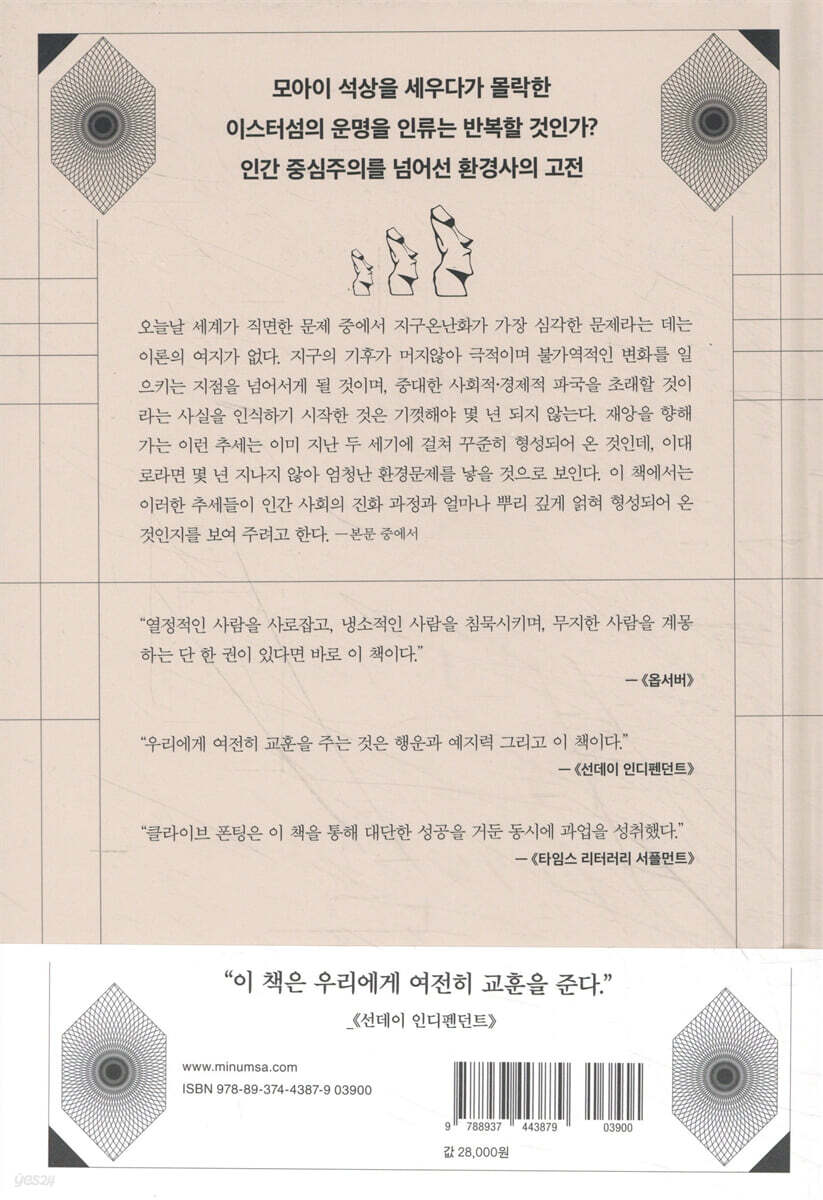 모아이 석상을 세우다가 몰락한
이스터섬의 운명을 인류는 반복할 것인가?
인간 중심주의를 넘어선 환경사의 고전
오늘날 세계가 직면한 문제 중에서 지구온난화가 가장 심각한 문제라는 데는
이론의 여지가 없다. 지구의 기후가 머지않아 극적이며 불가역적인 변화를 일
으키는 지점을 넘어서게 될 것이며, 중대한 사회적·경제적 파국을 초래할 것이
라는 사실을 인식하기 시작한 것은 기껏해야 몇 년 되지 않는다. 재앙을 향해
가는 이런 추세는 이미 지난 두 세기에 걸쳐 꾸준히 형성되어 온 것인데, 이대
로라면 몇 년 지나지 않아 엄청난 환경문제를 낳을 것으로 보인다. 이 책에서는
이러한 추세들이 인간 사회의 진화 과정과 얼마나 뿌리 깊게 얽혀 형성되어 온
것인지를 보여 주려고 한다. —본문 중에서
“열정적인 사람을 사로잡고, 냉소적인 사람을 침묵시키며, 무지한 사람을 계몽
하는 단 한 권이 있다면 바로 이 책이다.”
—《옵서버》
“우리에게 여전히 교훈을 주는 것은 행운과 예지력 그리고 이 책이다.”
—《선데이 인디펜던트》
“클라이브 폰팅은 이 책을 통해 대단한 성공을 거둔 동시에 과업을 성취했다.”
—《타임스 리터러리 서플먼트》
“이 책은 우리에게 여전히 교훈을 준다.”
_《선데이 인디펜던트》
www.minumsa.com
ISBN 978-89-374-4387-9 03900
9 788937 443879 03900
값 28,000원
yes24